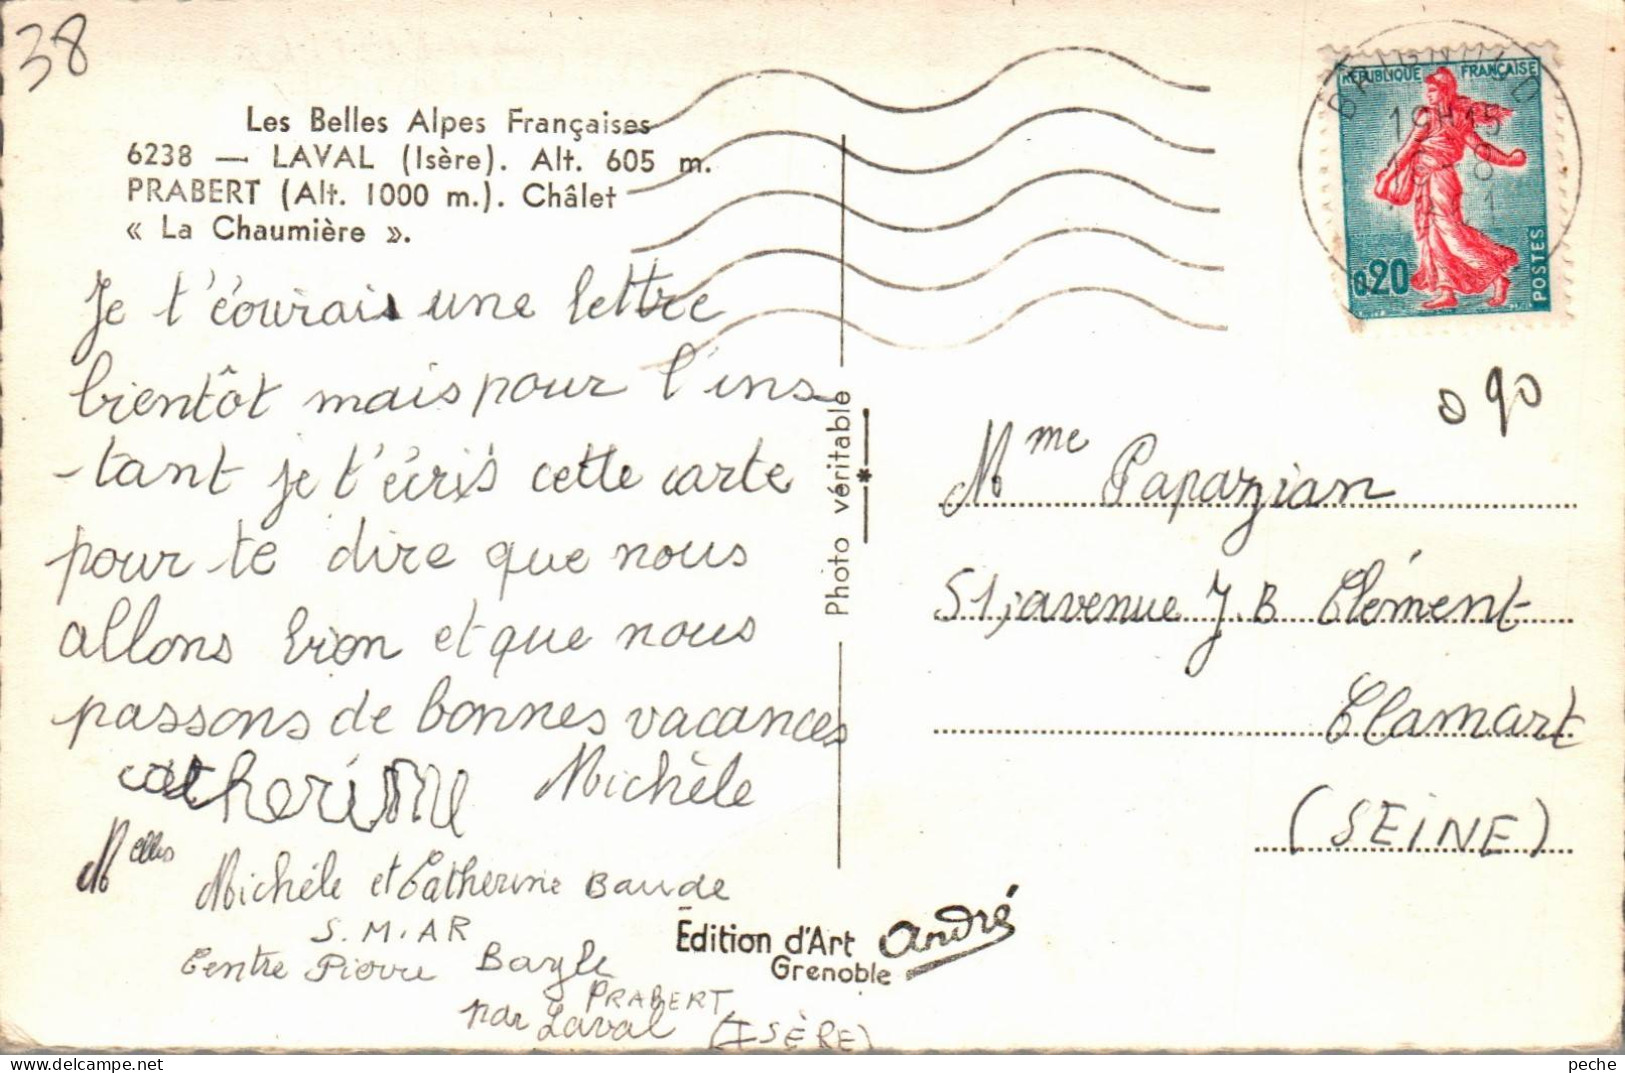 38
Les Belles Alpes Françaises
6238 — LAVAL (Isère). Alt. 605 m.
PRABERT (Alt. 1000 m.). Châlet
« La Chaumière ».
Je t'écourais une lettre
bientôt mais pour l'ins-
-tant je t'écris cette carte
pour te dire que nous
allons bion et que nous
passons de bonnes vacances
catherine Michèle
Melles
Michèle et Catherine Baude
S.M.AR
Centre Piovre Bayle
PRABERT
par Laval (ISÈRE)
Edition d'Art André
Grenoble
Photo véritable
RÉPUBLIQUE FRANÇAISE
19H15
0,20
POSTES
Mme Papazian
51, avenue J.B Clément
Clamart
(SEINE)
peche